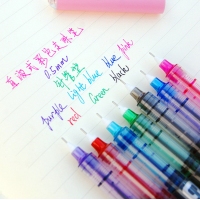 直液式彩色走珠笔
0.5mm
blue pink
light blue
black
Green
purple
red